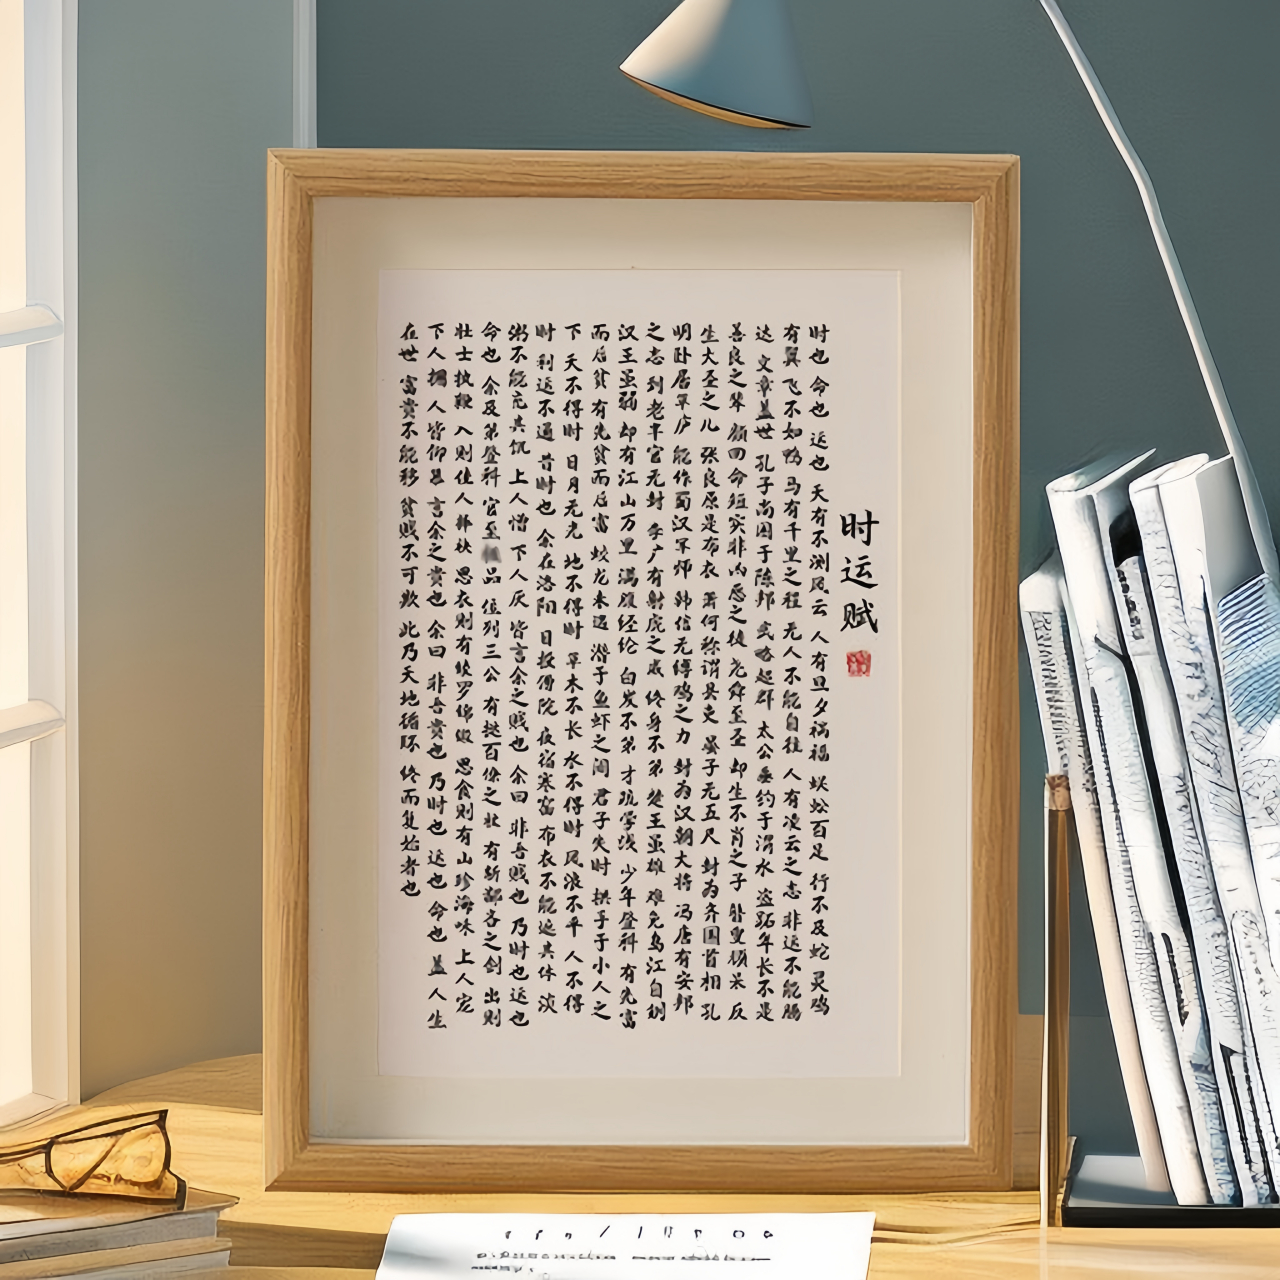 时运赋
时也 命也 运也 天有不测风云 人有旦夕祸福 蜈蚣百足 行不及蛇 灵鸡
有翼 飞不如鸭 马有千里之程 无人不能自往 人有凌云之志 非运不能腾
达 文章盖世 孔子尚困于陈邦 武略超群 太公垂钓于渭水 盗跖年长不是
善良之辈 颜回命短实非凶恶之徒 尧舜至圣 却生不肖之子 瞽叟顽呆 反
生大圣之儿 张良原是布衣 萧何称谓县吏 晏子无五尺 封为齐国首相 孔
明卧居草庐 能作蜀汉军师 韩信无缚鸡之力 封为汉朝大将 冯唐有安邦
之志 到老半官无封 李广有射虎之威 终身不第 楚王虽雄 难免乌江自刎
汉王虽弱 却有江山万里 满腹经纶 白发不第 才疏学浅 少年登科 有先富
而后贫 有先贫而后富 蛟龙未遇 潜于鱼虾之间 君子失时 拱手于小人之
下 天不得时 日月无光 地不得时 草木不长 水不得时 风浪不平 人不得
时 利运不通 昔时也 余在洛阳 日投僧院 夜宿寒窑 布衣不能遮其体 淡
粥不能充其饥 上人憎 下人厌 皆言余之贱也 余曰 非吾贱也 乃时也运也
命也 余及第登科 官至品 位列三公 有挞百僚之杖 有斩鄙吝之剑 出则
壮士执鞭 入则佳人捧袂 思衣则有绫罗锦缎 思食则有山珍海味 上人宠
下人拥 人皆仰慕 言余之贵也 余曰 非吾贵也 乃时也 运也 命也 盖人生
在世 富贵不能移 贫贱不可欺 此乃天地循环 终而复始者也